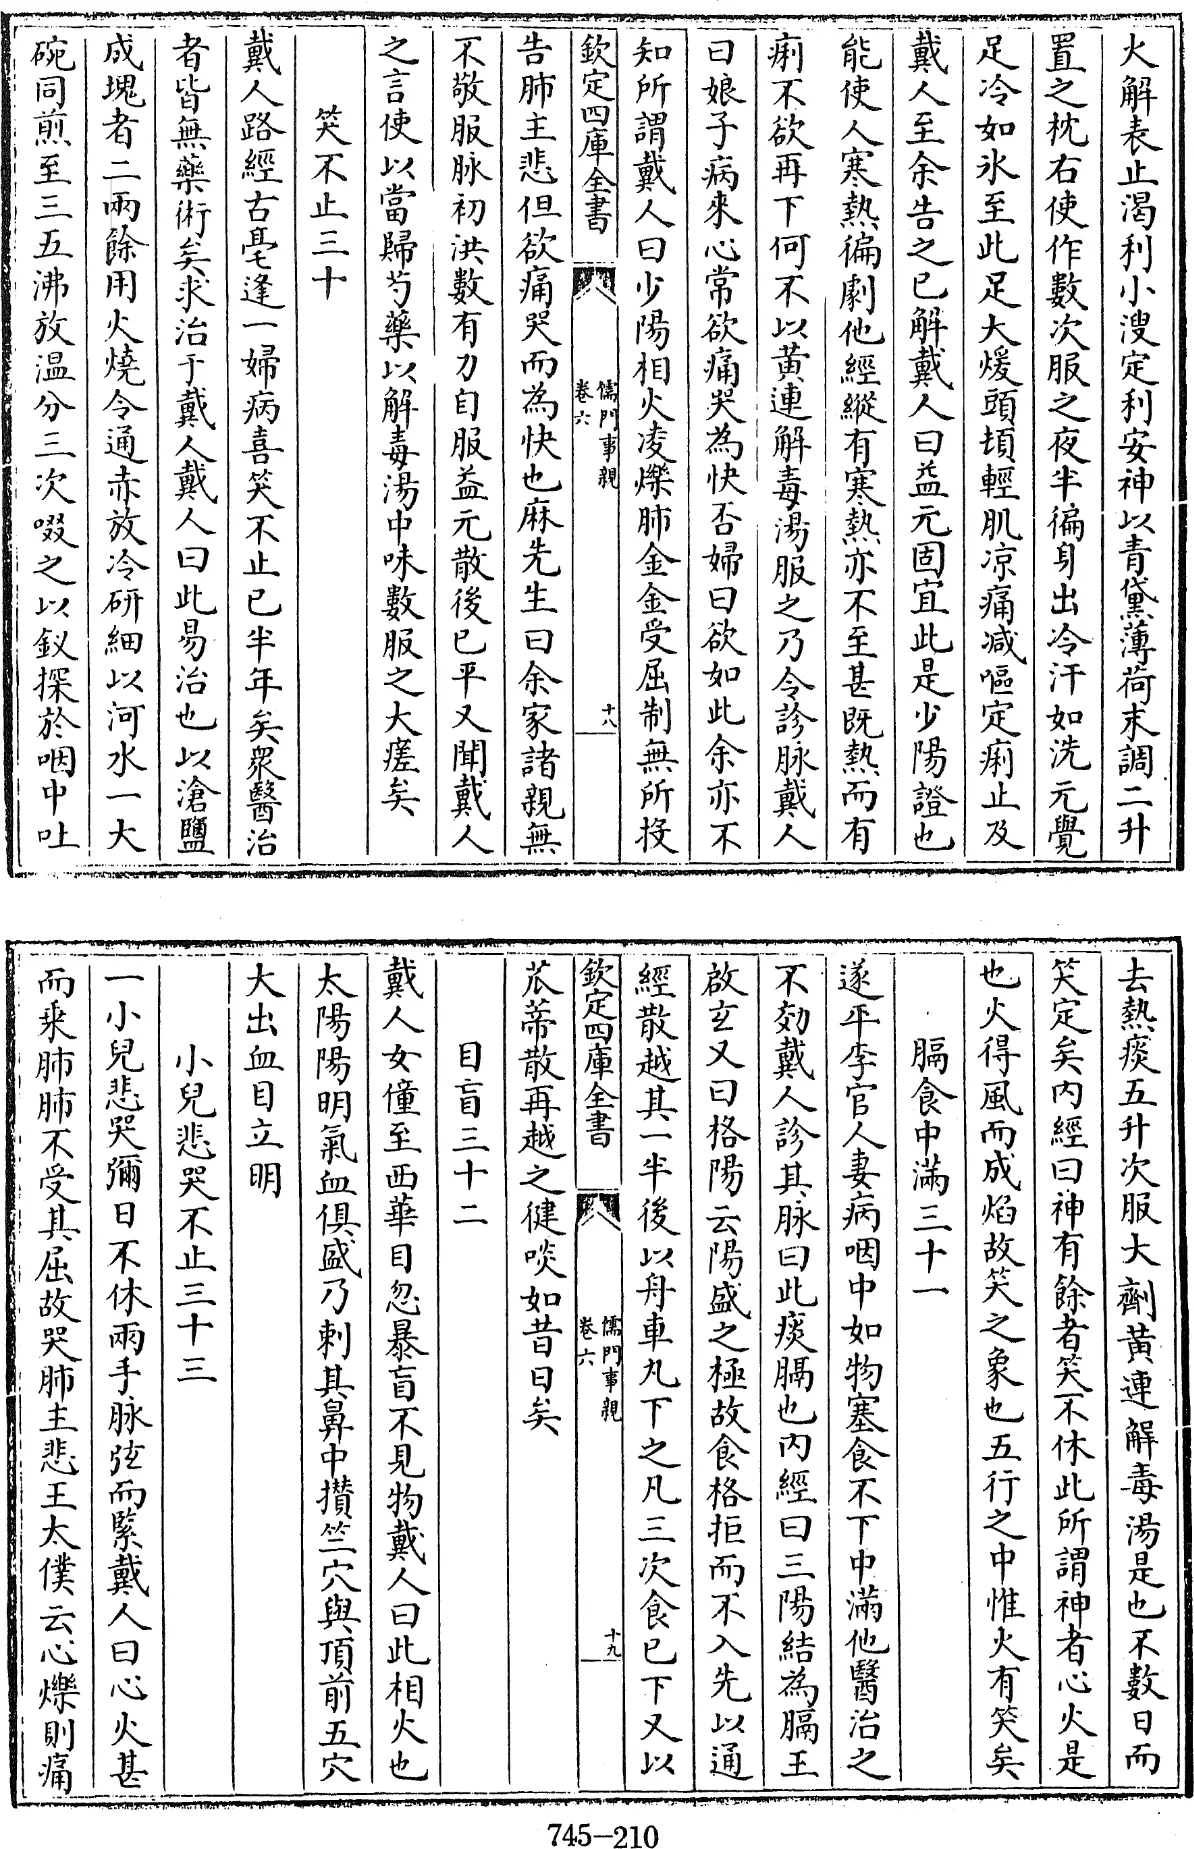 火解表止渴利小溲定利安神以青黛薄荷末調二升
置之枕右使作數次服之夜半徧身出冷汗如洗元覺
足冷如氷至此足大煖頭頓輕肌凉痛减嘔定痢止及
戴人至余告之已解戴人曰益元固宜此是少陽證也
能使人寒熱徧劇他經縱有寒熱亦不至甚既熱而有
痢不欲再下何不以黄連解毒湯服之乃令診脉戴人
曰娘子病來心常欲痛哭為快否婦曰欲如此余亦不
知所謂戴人曰少陽相火凌爍肺金金受屈制無所投
欽定四庫全書
儒門事親
卷六
十八
告肺主悲但欲痛哭而為快也麻先生曰余家諸親無
不敬服脉初洪數有力自服益元散後已平又聞戴人
之言使以當歸芍藥以解毒湯中味數服之大瘥矣
笑不止三十
戴人路經古亳逢一婦病喜笑不止已半年矣衆醫治
者皆無藥術矣求治于戴人戴人曰此易治也以滄鹽
成塊者二兩餘用火燒令通赤放冷研細以河水一大
碗同煎至三五沸放温分三次啜之以釵探於咽中吐
去熱痰五升次服大劑黄連解毒湯是也不數日而
笑定矣内經曰神有餘者笑不休此所謂神者心火是
也火得風而成焰故笑之象也五行之中惟火有笑矣
膈食中滿三十一
遂平李官人妻病咽中如物塞食不下中滿他醫治之
不効戴人診其脉曰此痰膈也内經曰三陽結為膈王
啟玄又曰格陽云陽盛之極故食格拒而不入先以通
經散越其一半後以舟車丸下之凡三次食已下又以
欽定四庫全書
儒門事親
卷六
十九
苽蒂散再越之健啖如昔日矣
目盲三十二
戴人女僮至西華目忽暴盲不見物戴人曰此相火也
太陽陽明氣血俱盛乃刺其鼻中攢竺穴與頂前五穴
大出血目立明
小兒悲哭不止三十三
一小兒悲哭彌日不休兩手脉弦而緊戴人曰心火甚
而乘肺肺不受其屈故哭肺主悲王太僕云心爍則痛
745-210